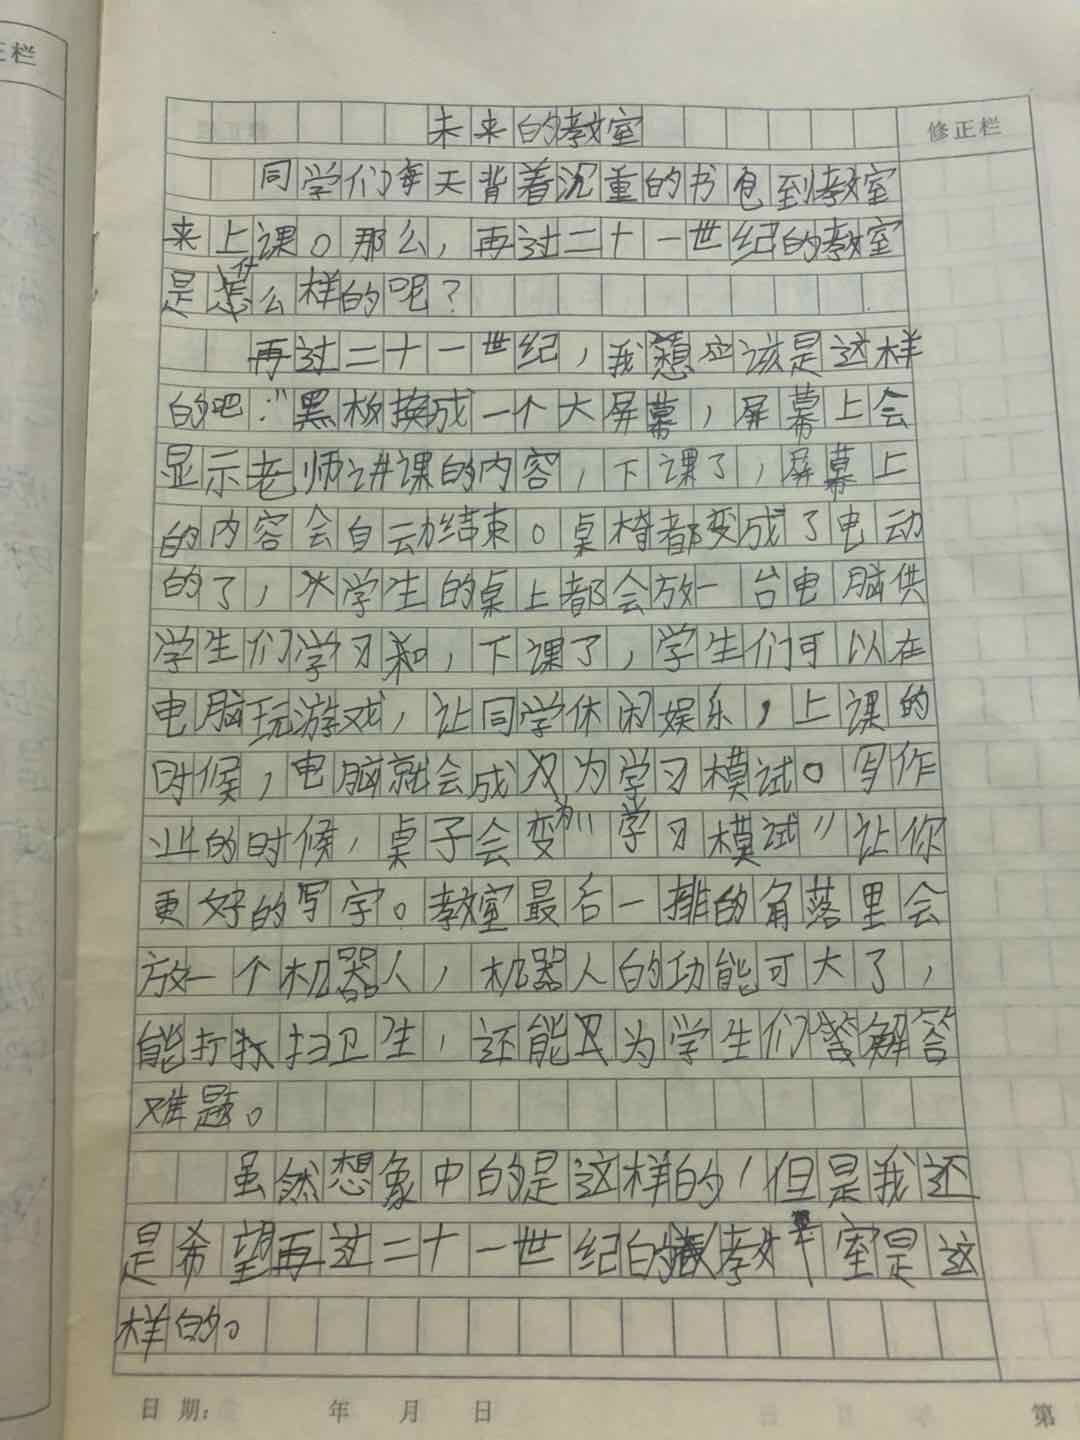 正栏
修正栏
未来的教室
同学们每天背着沉重的书包到教室
来上课。那么，再过二十一世纪的教室
是什么样的呢？
再过二十一世纪，我想应该是这样
的吧："黑板换成一个大屏幕，屏幕上会
显示老师讲课的内容，下课了，屏幕上
的内容会自动结束。桌椅都变成了电动
的了，学生的桌上都会放一台电脑供
学生们学习和，下课了，学生们可以在
电脑玩游戏，让同学休闲娱乐，上课的
时候，电脑就会成为学习模试。写作
业的时候，桌子会变为"学习模试"让你
更好的写字。教室最后一排的角落里会
放一个机器人，机器人的功能可大了，
能打扫卫生，还能为学生们解答
难题。
虽然想象中的是这样的，但是我还
是希望再过二十一世纪的教室是这
样的。
日期： 年 月 日
第